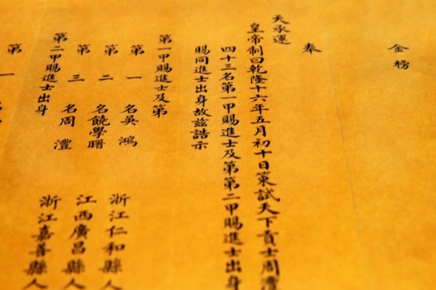 金務
奉
天承運
皇帝制曰乾隆十六年五月初十日策試天下貢士周澧
四十三名第一甲賜進士及第第二甲賜進士出身
賜同進士出身故茲誥示
第一甲賜進士及第
第一名吳鴻 浙江仁和縣人
第二名饒學曙 江西廣昌縣人
第三名周澧 浙江嘉善縣人
第二甲賜進士出身
第一